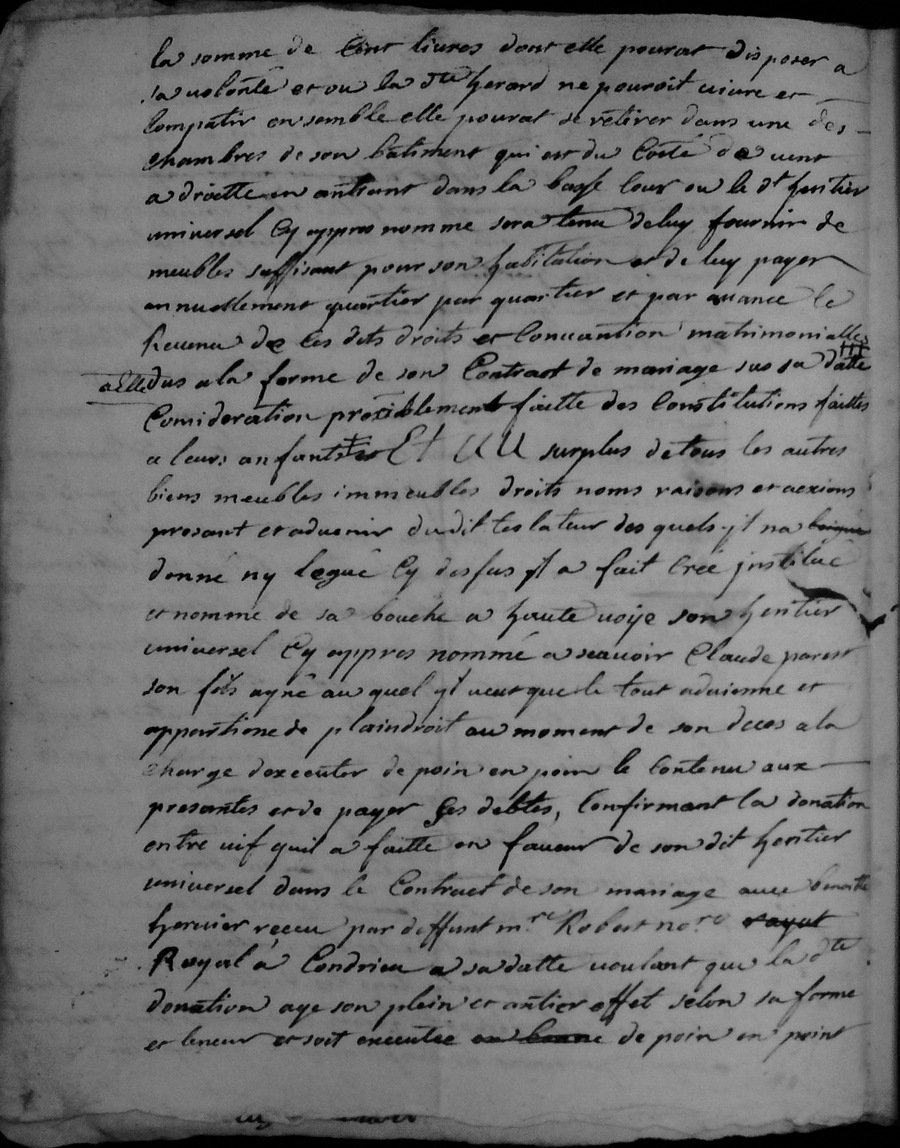 la somme de Cent livres dont elle pourat disposer a
sa volonté et ou la dte herard ne pouroit vivre et
Compatir ensemble elle pourat se retirer dans une des
chambres de son batiment qui est du Costé de vent
a droitte en antrant dans la basse Cour ou le dt heritier
universel Cy appres nomme sera tenu de luy fournir de
meubles suffisant pour son habitation et de luy payer
annuellement quartier par quartier et par avance le
Revenu de Ces dits droits et Convantion matrimonialles
a Elle dus a la forme de son Contract de mariage sus sa datte
Consideration faitte des Constitutions faittes
a leurs anfants Et AU surplus de tous les autres
biens meubles immeubles droits noms raisons et axions
presant et advenir dudit testateur des quels jl na
donné ny legué Cy dessus jl a fait Créé jnstitué
et nommé de sa bouche a haute voÿe son heritier
universel Cy appres nommé a scavoir Claude paret
son fils ayné au quel jl veut que le tout advienne et
appartiene de plaindroit au moment de son deces a la
charge dexecuter de poin en poin le Contenu aux
presantes et de payer Ses debtes, Confirmant la donation
entre vif quil a faitte en faveur de son dit heritier
universel dans le Contract de son mariage avec benoitte
hervier receu par deffunt mre Robert nore rayal
Royal a Condrieu a sa datte voulant que la dte
donation aye son plein et antier effet selon sa forme
et teneur et soit executee de poin en point